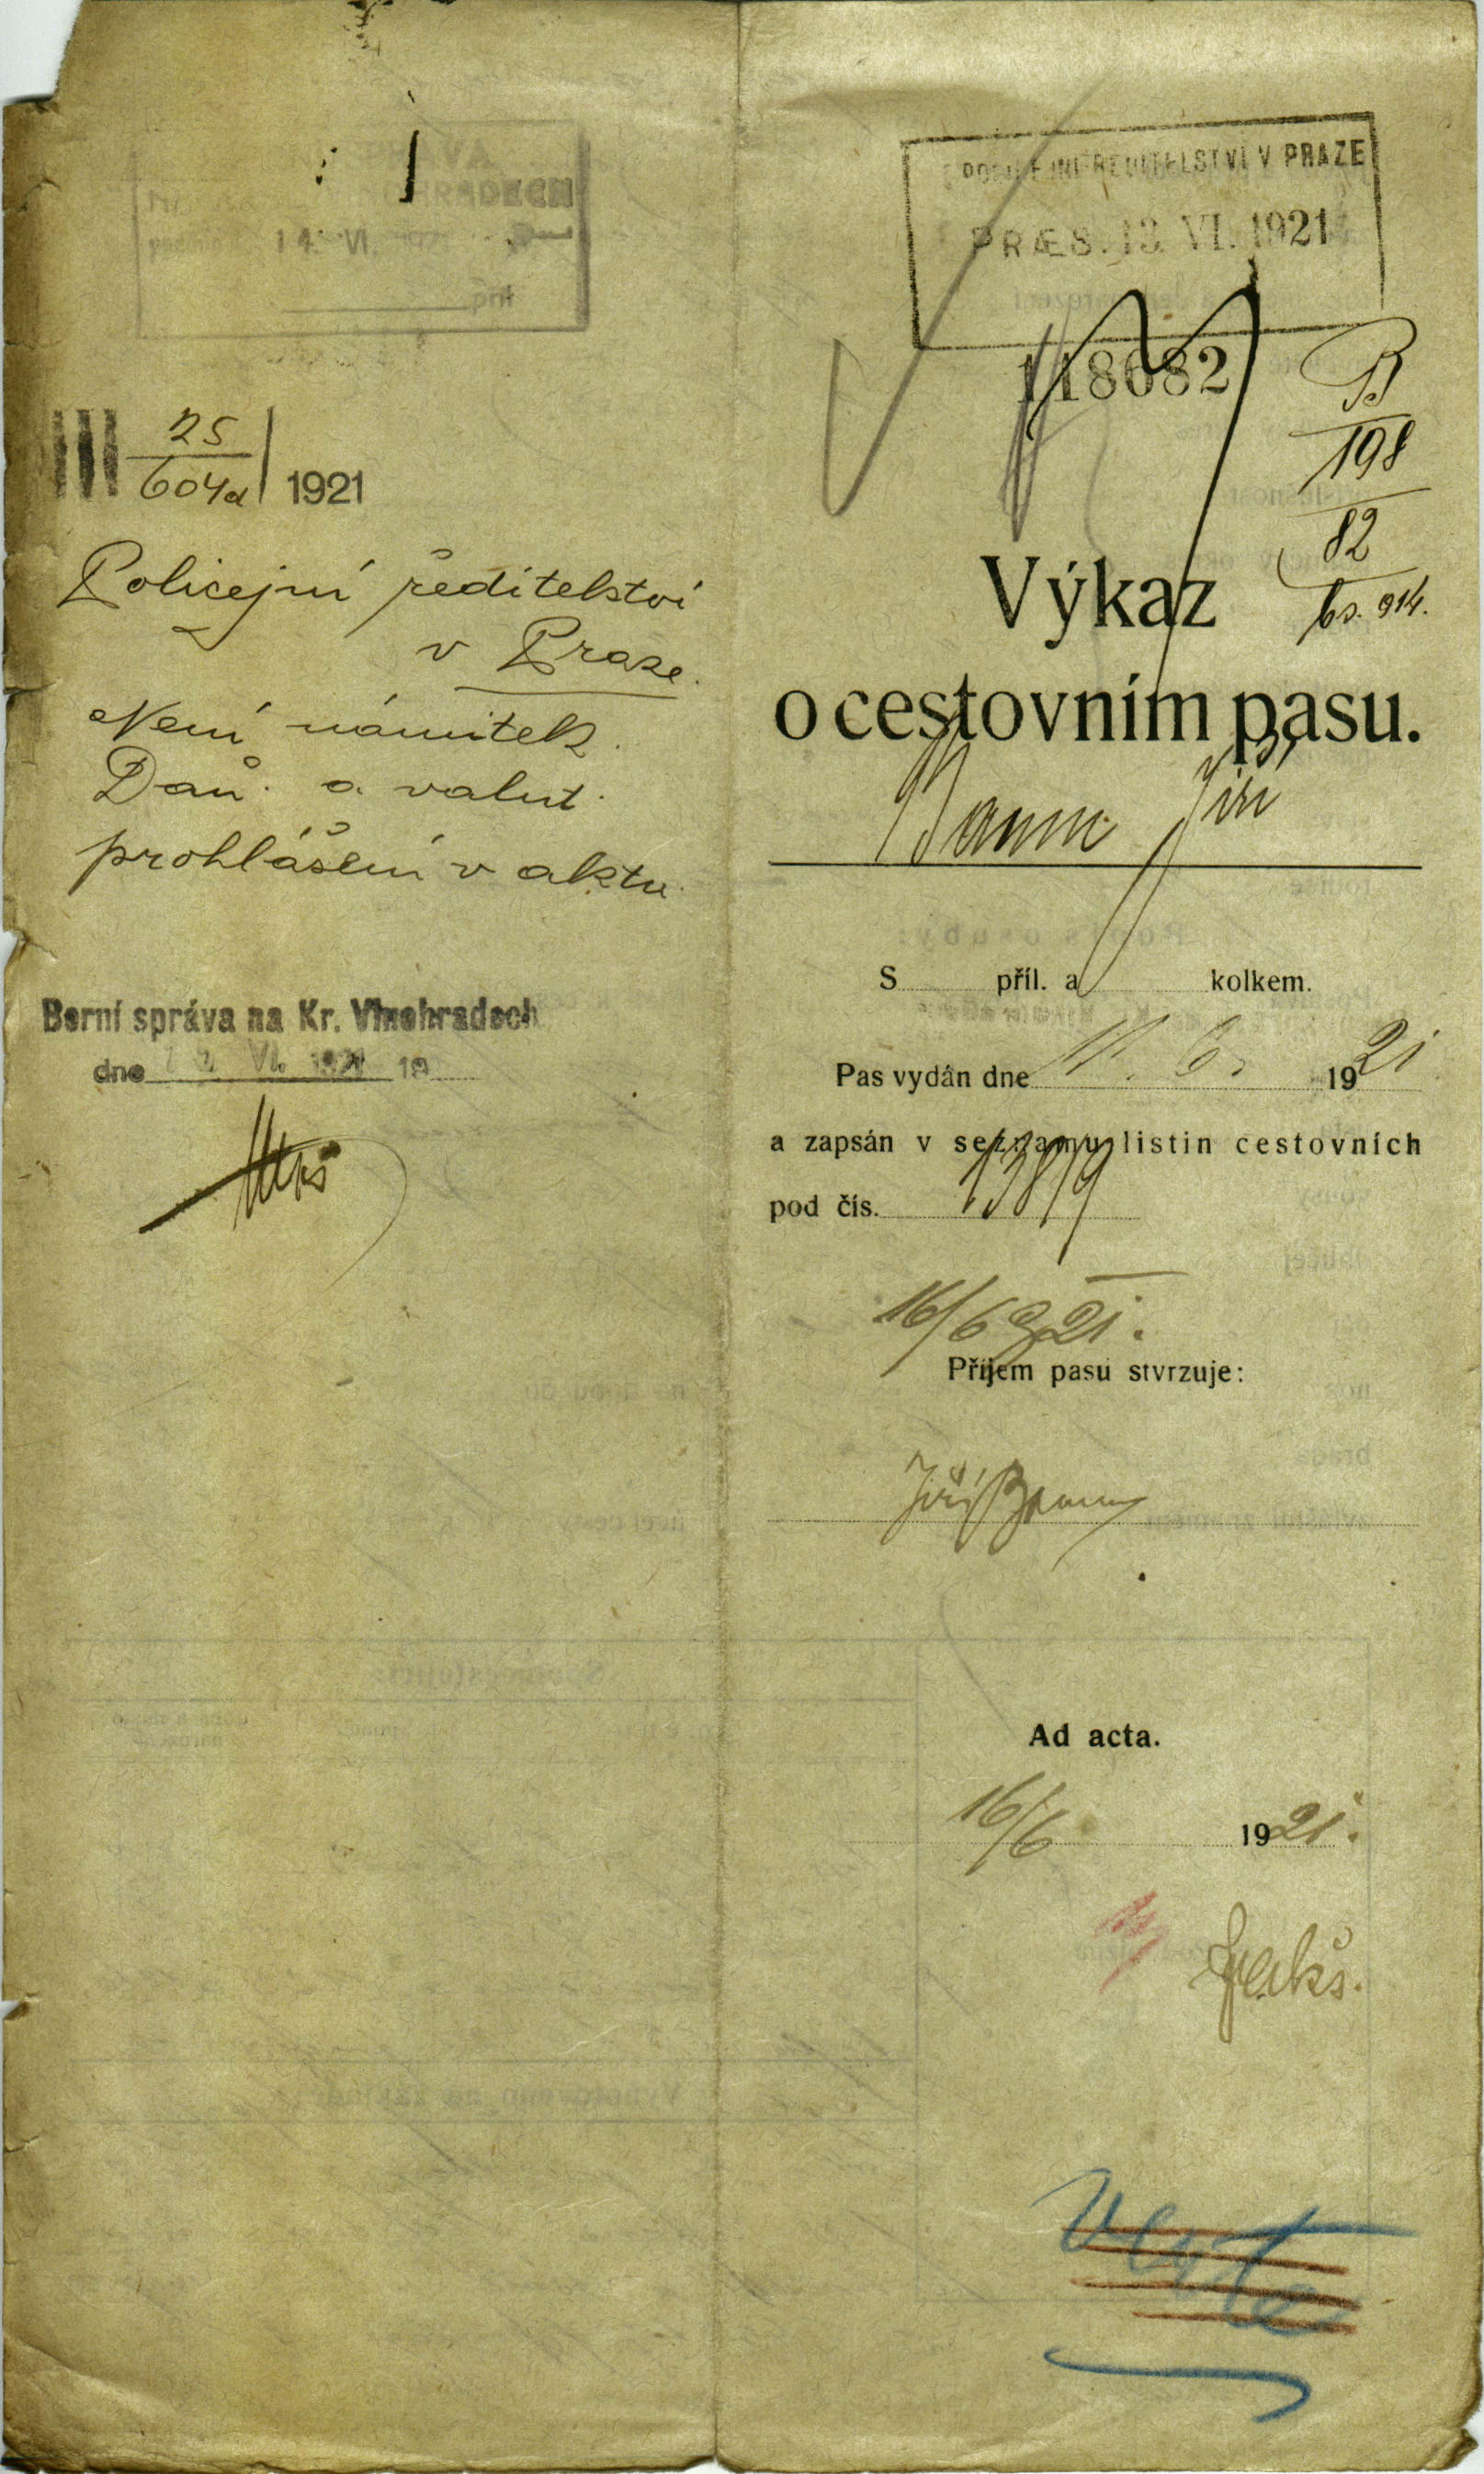 III 25
604a 1921
Policejní ředitelství
v Praze.
Není námitek.
Daň. a valut.
prohlášení v aktu.
Berní správa na Kr. Vinohradech
dne VI. 1921 19
POLICEJNÍ ŘEDITELSTVÍ V PRAZE
PRÆS. 13. VI. 1921
118682
B
198
82
Výkaz
o cestovním pasu.
Baum Jiří
S příl. a kolkem.
Pas vydán dne 6. 1921
a zapsán v seznamu listin cestovních
pod čís. 13819
16/6 921.
Příjem pasu stvrzuje:
Jiří Baum
Ad acta.
16/6 1921.